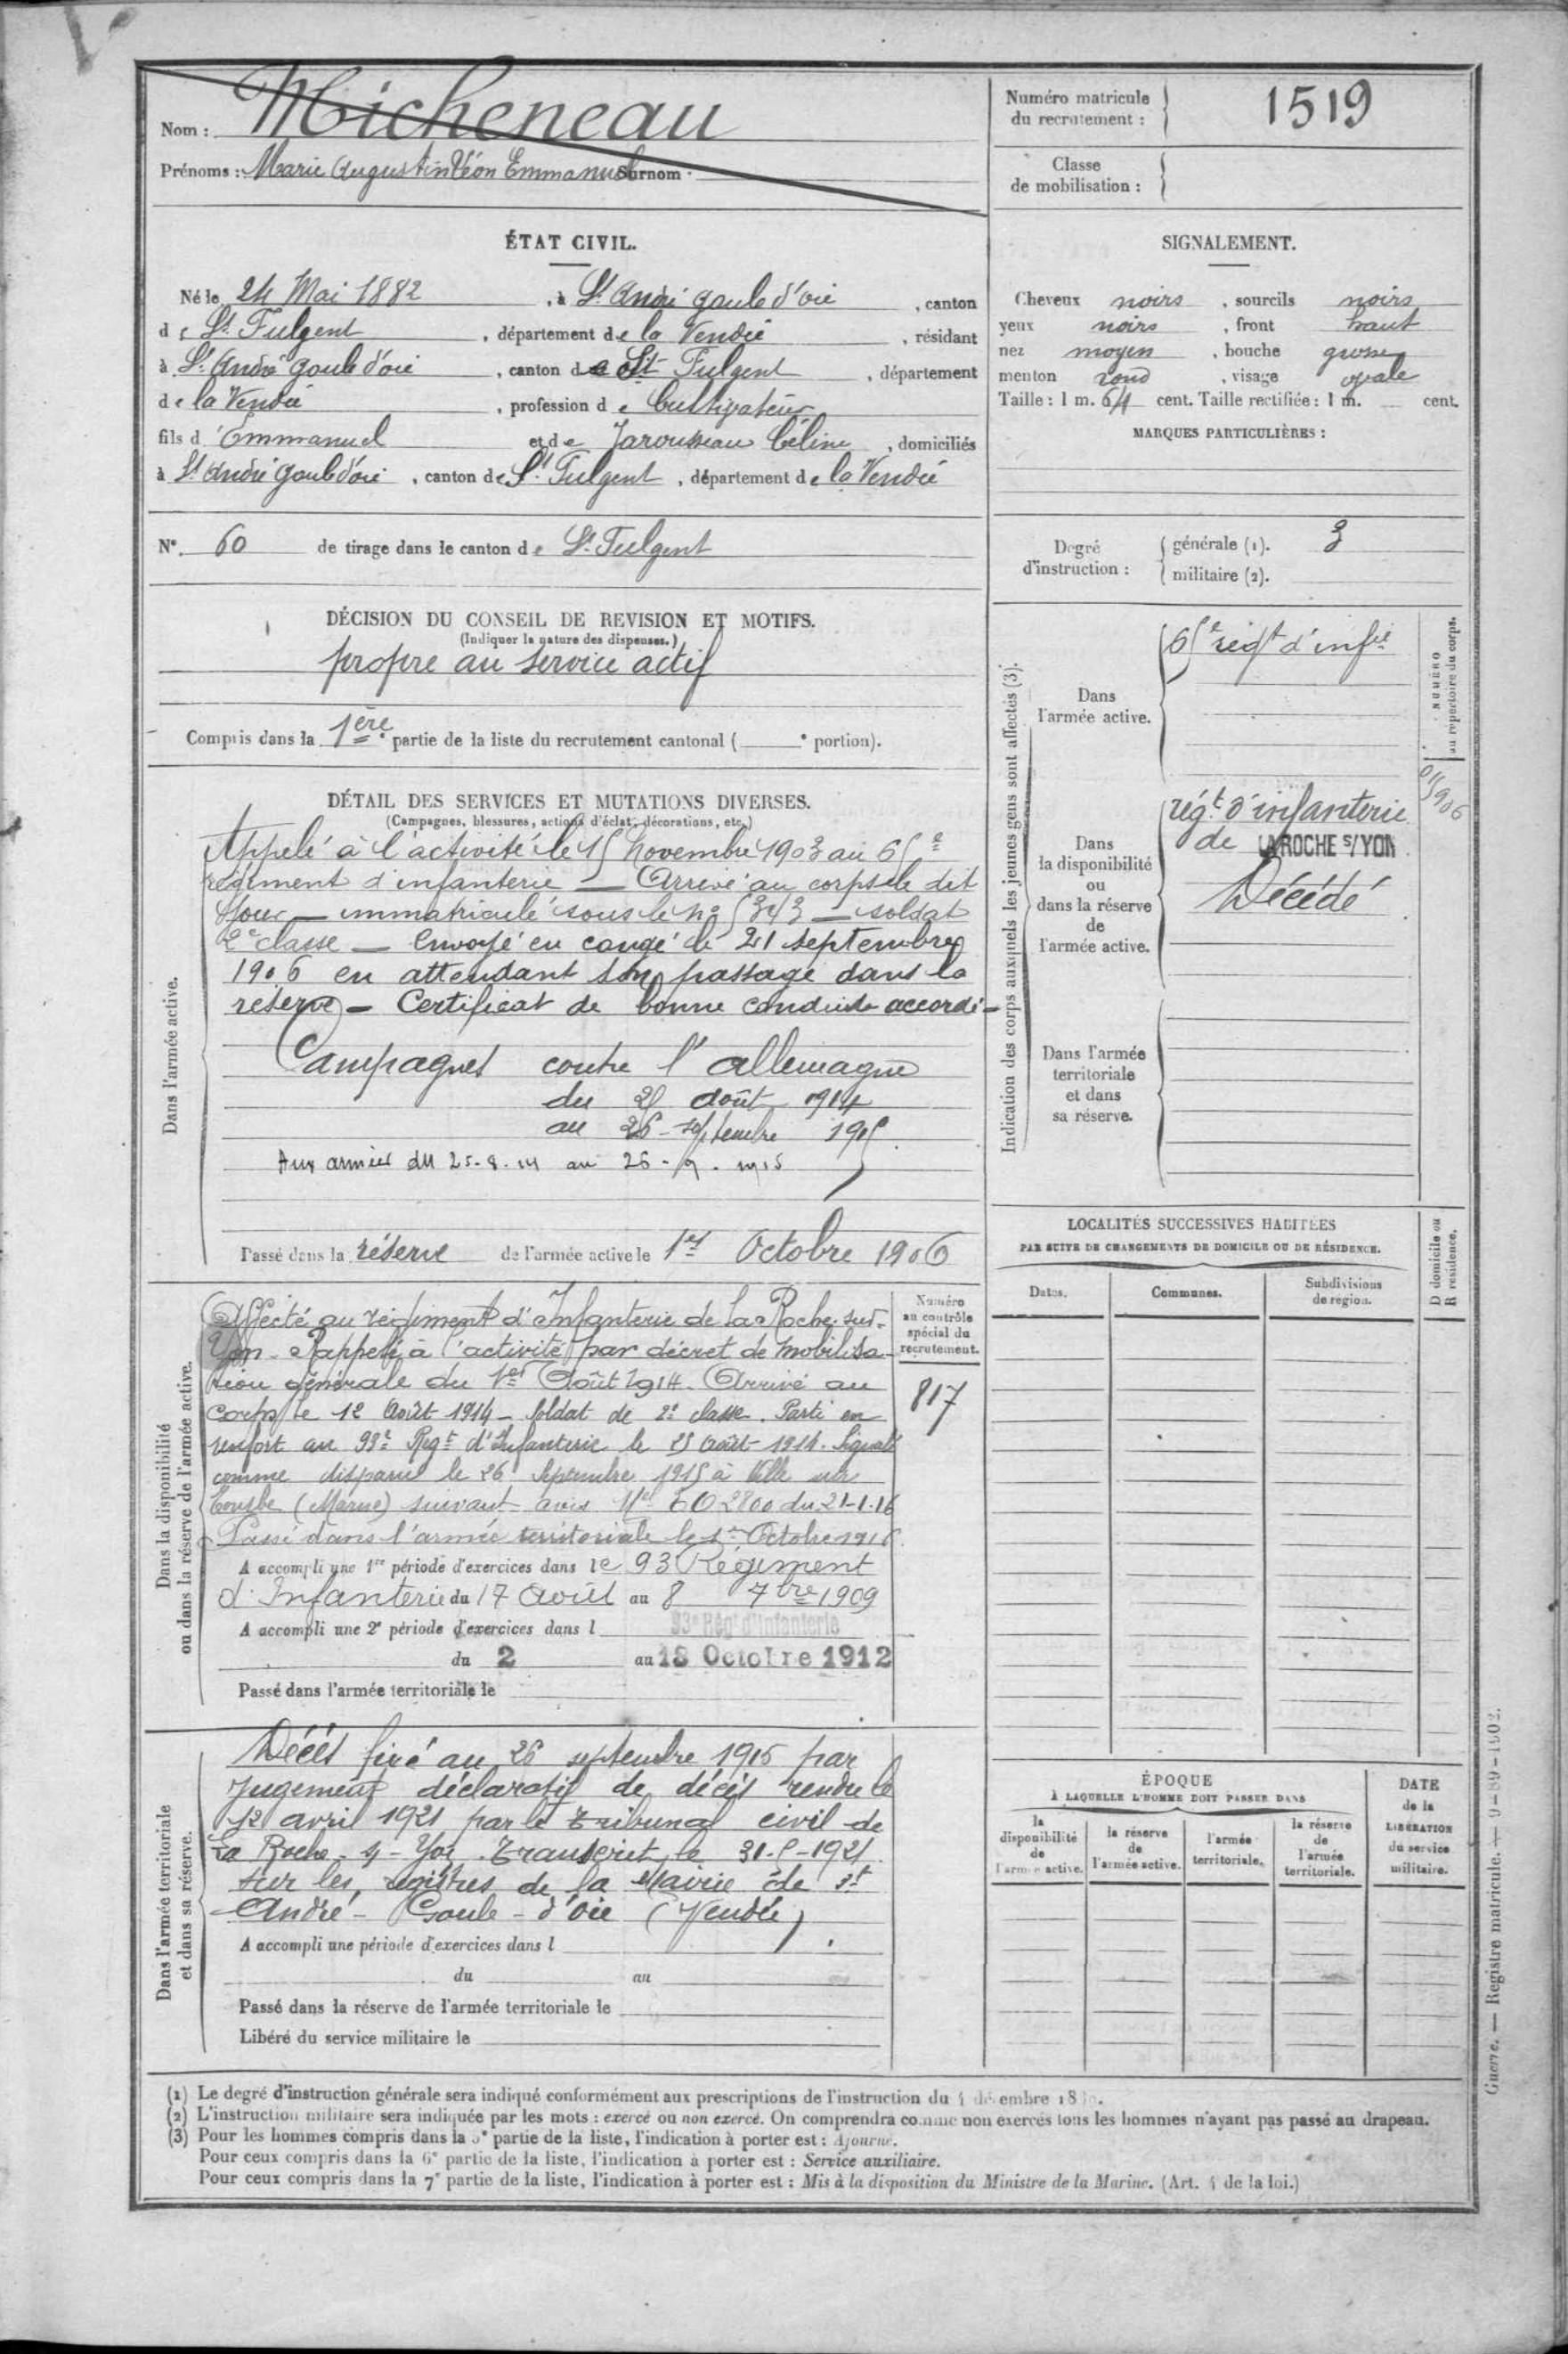 Nom : Micheneau
Prénoms : Marie Augustin Léon Emmanuel Surnom :
Numéro matricule du recrutement : 1519
Classe de mobilisation :
ÉTAT CIVIL.
Né le 24 Mai 1882, à St. André goule d'oie, canton
de St. Fulgent, département de la Vendée, résidant
à St. André goule d'oie, canton de St Fulgent, département
de la Vendée, profession de Cultivateur
fils d'Emmanuel et de Jarousseau Céline, domiciliés
à St André goule d'oie, canton de St. Fulgent, département de la Vendée
SIGNALEMENT.
Cheveux noirs, sourcils noirs
yeux noirs, front haut
nez moyen, bouche grosse
menton rond, visage ovale
Taille : 1 m. 64 cent. Taille rectifiée : 1 m. — cent.
MARQUES PARTICULIÈRES :
N°. 60 de tirage dans le canton de St. Fulgent
Degré d'instruction :
générale (1). 3
militaire (2).
DÉCISION DU CONSEIL DE REVISION ET MOTIFS.
(Indiquer la nature des dispenses.)
propre au service actif
Compris dans la 1ère partie de la liste du recrutement cantonal ( ——e portion).
DÉTAIL DES SERVICES ET MUTATIONS DIVERSES.
(Campagnes, blessures, actions d'éclat, décorations, etc.)
Dans l'armée active.
Appelé à l'activité le 15 novembre 1903 au 65e
régiment d'infanterie — Arrivé au corps le dit
jour — immatriculé sous le n° 5343 — soldat
2e classe — Envoyé en congé le 21 septembre
1906 en attendant son passage dans la
réserve — Certificat de bonne conduite accordé —
Campagnes contre l'allemagne
du 25 août 1914
au 26 septembre 1915.
Aux armées du 25-8-14 au 26-9-1915
Passé dans la réserve de l'armée active le 1er Octobre 1906
Dans la disponibilité ou dans la réserve de l'armée active.
Affecté au régiment d'Infanterie de La Roche-sur-
Yon. Rappelé à l'activité par décret de mobilisa-
tion générale du 1er Août 1914. Arrivé au
Corps le 12 Août 1914 — Soldat de 2e classe. Parti en
renfort au 93e Regt d'Infanterie le 25 Août 1914. Signalé
comme disparu le 26 Septembre 1915 à Ville sur
Tourbe (Marne) suivant avis Mel 60 2800 du 21-1-16
Passé dans l'armée territoriale le 1er Octobre 1916.
A accompli une 1re période d'exercices dans le 93 Régiment
d'Infanterie du 17 Août au 8 7bre 1909
A accompli une 2e période d'exercices dans l 93e Rég' d'Infanterie
du 2 au 18 Octobre 1912
Passé dans l'armée territoriale le
Numéro au contrôle spécial du recrutement.
817
Dans l'armée territoriale et dans sa réserve.
Décès fixé au 26 septembre 1915 par
jugement déclaratif de décès rendu le
12 avril 1921 par le tribunal civil de
La Roche-s-Yon. Transcrit le 31-5-1921
sur les registres de la Mairie de St
André-Goule-d'Oie (Vendée).
A accompli une période d'exercices dans l
du au
Passé dans la réserve de l'armée territoriale le
Libéré du service militaire le
Indication des corps auxquels les jeunes gens sont affectés (3).
NUMÉRO au répertoire du corps.
Dans l'armée active.
65e régt d'infie
Dans la disponibilité ou dans la réserve de l'armée active.
régt d'infanterie
de LA ROCHE S/YON
Décédé
Dans l'armée territoriale et dans sa réserve.
LOCALITÉS SUCCESSIVES HABITÉES
PAR SUITE DE CHANGEMENTS DE DOMICILE OU DE RÉSIDENCE.
Dates. Communes. Subdivisions de région. D domicile ou R résidence.
ÉPOQUE
À LAQUELLE L'HOMME DOIT PASSER DANS
la disponibilité de l'armée active.
la réserve de l'armée active.
l'armée territoriale.
la réserve de l'armée territoriale.
DATE de la LIBÉRATION du service militaire.
(1) Le degré d'instruction générale sera indiqué conformément aux prescriptions de l'instruction du 4 décembre
(2) L'instruction militaire sera indiquée par les mots : exercé ou non exercé. On comprendra comme non exercés tous les hommes n'ayant pas passé au drapeau.
(3) Pour les hommes compris dans la 5e partie de la liste, l'indication à porter est : Ajourné.
Pour ceux compris dans la 6e partie de la liste, l'indication à porter est : Service auxiliaire.
Pour ceux compris dans la 7e partie de la liste, l'indication à porter est : Mis à la disposition du Ministre de la Marine. (Art. 4 de la loi.)
Guerre. — Registre matricule. — 9-89-1902.